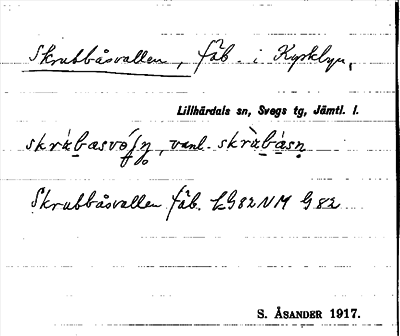 Skrubbåsvallen, fäb. i Kyrkbyn,
Lillhärdals sn, Svegs tg, Jämtl. l.
vanl.
Skrubbåsvallen fäb. LG82NM G82
S. ÅSANDER 1917.